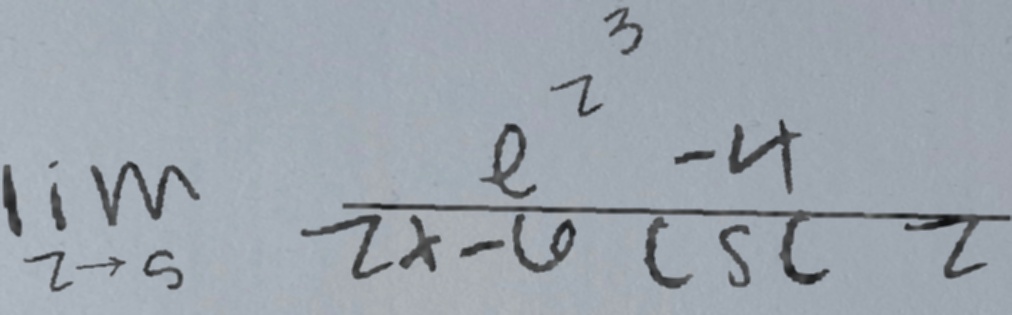 lim z→s e^{z^3} -4 / zx-6 csc z